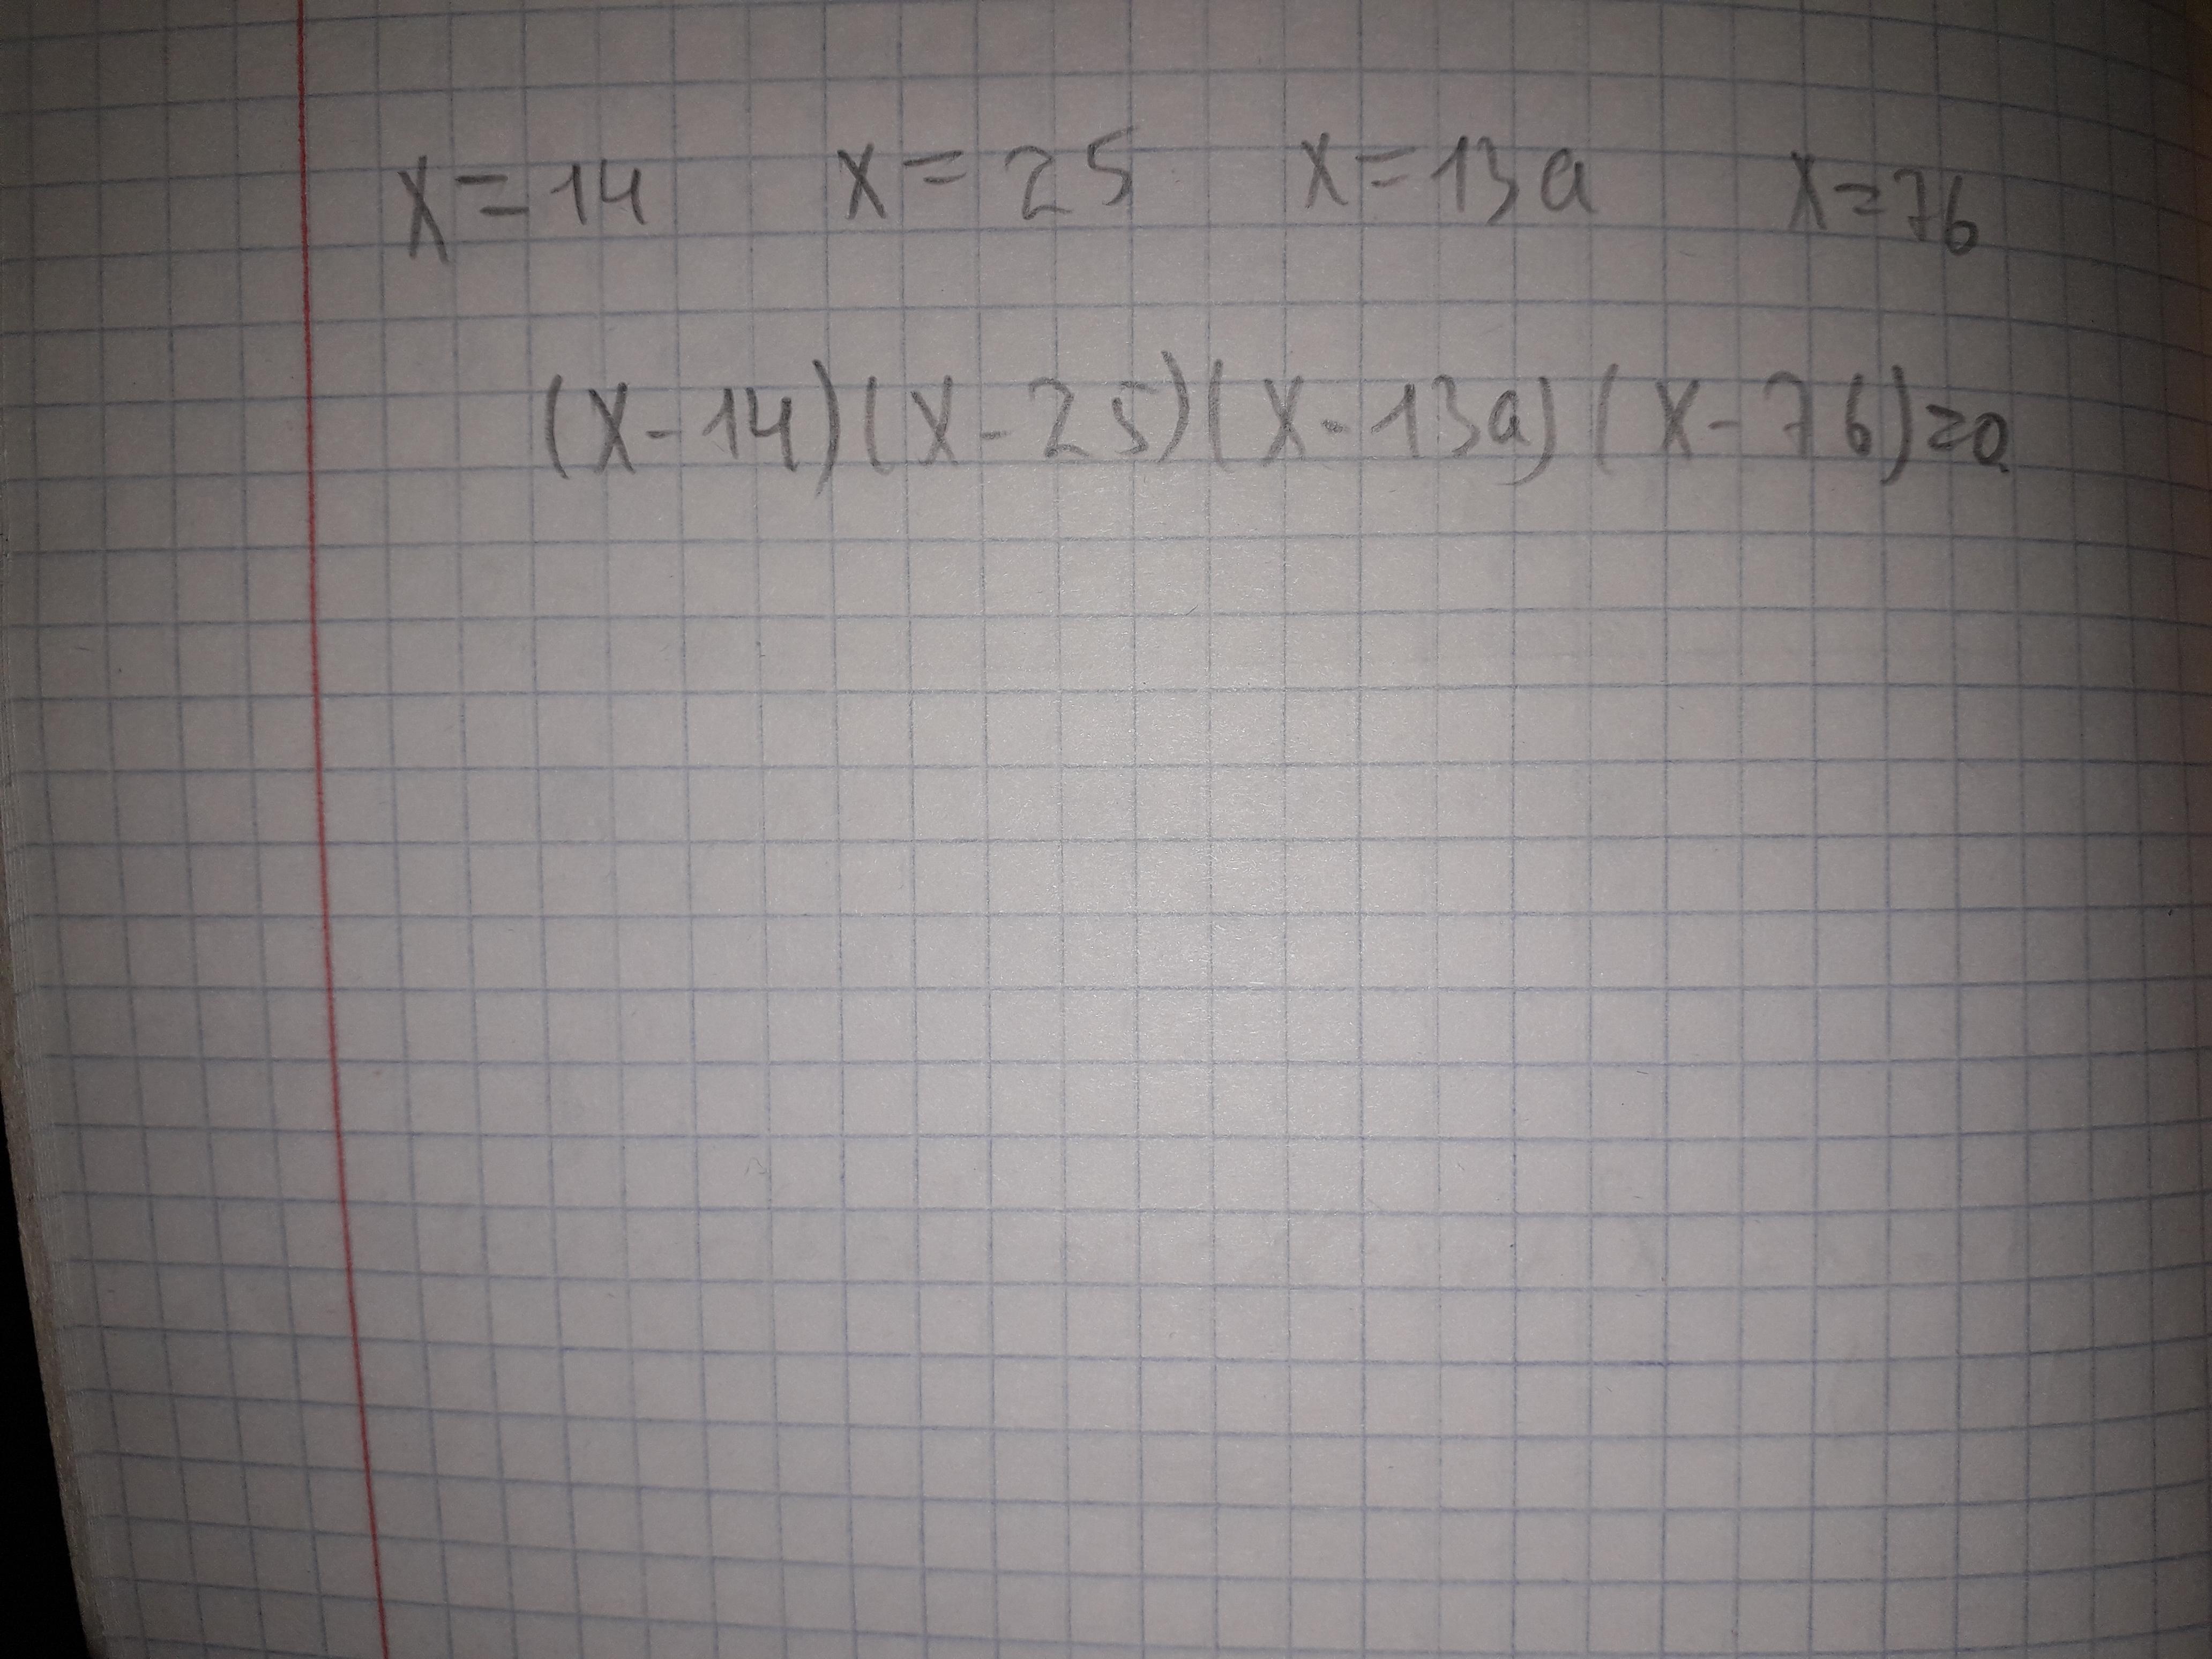 x=14 x=25 x=13a x=76
(x-14)(x-25)(x-13a)(x-76)=0